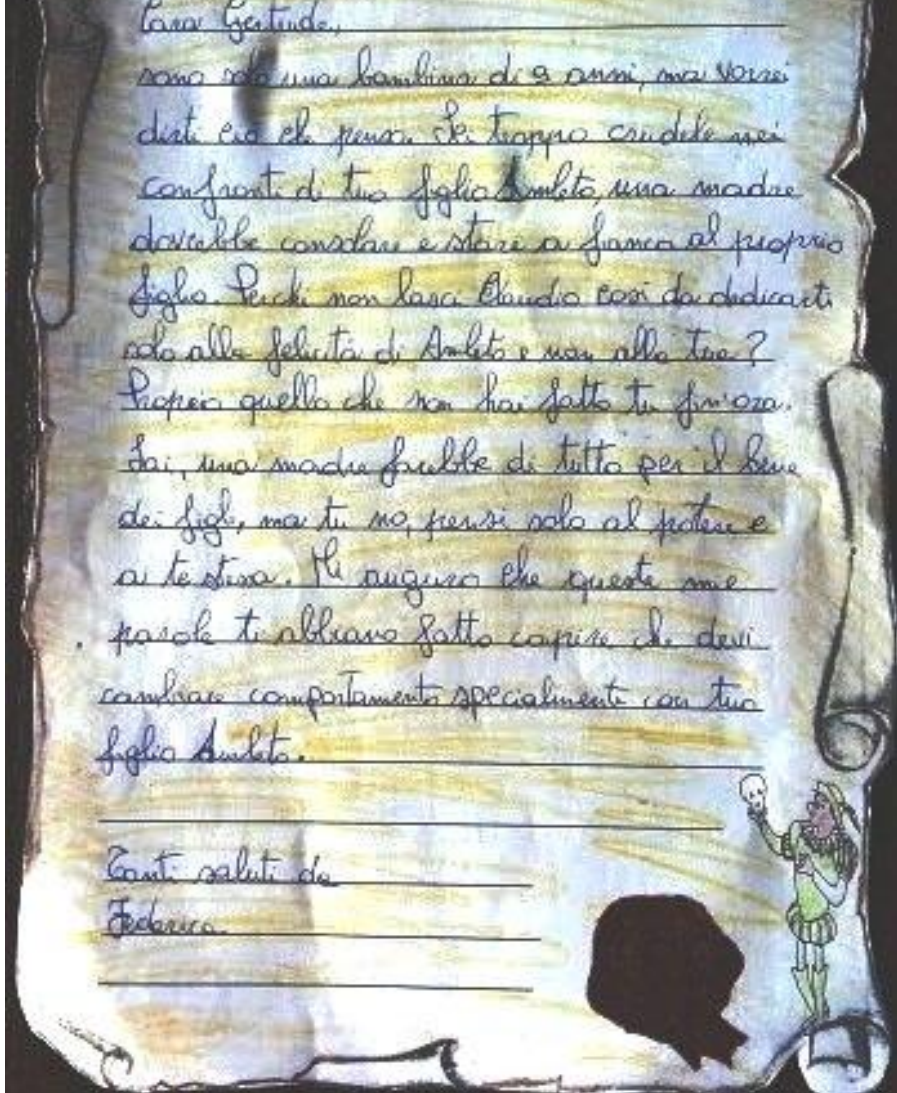 Cara Gertrude,
sono solo una bambina di 9 anni, ma vorrei
dirti ciò che penso. Sei troppo crudele nei
confronti di tuo figlio Amleto, una madre
dovrebbe consolare e stare a fianco al proprio
figlio. Perché non lasci Claudio così da dedicarti
solo alla felicità di Amleto e non alla tua?
Proprio quello che non hai fatto tu fin'ora.
Sai, una madre farebbe di tutto per il bene
dei figli, ma tu no, pensi solo al potere e
a te stessa. Mi auguro che queste mie
parole ti abbiano fatto capire che devi
cambiare comportamento specialmente con tuo
figlio Amleto.
Tanti saluti da
Federica